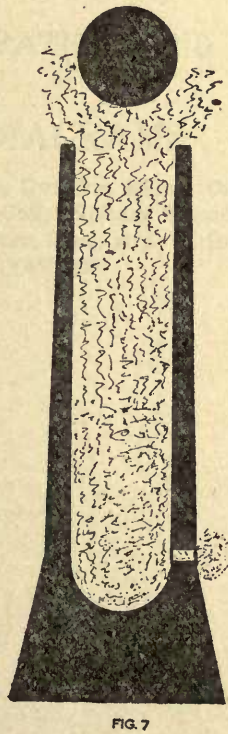 FIG. 7